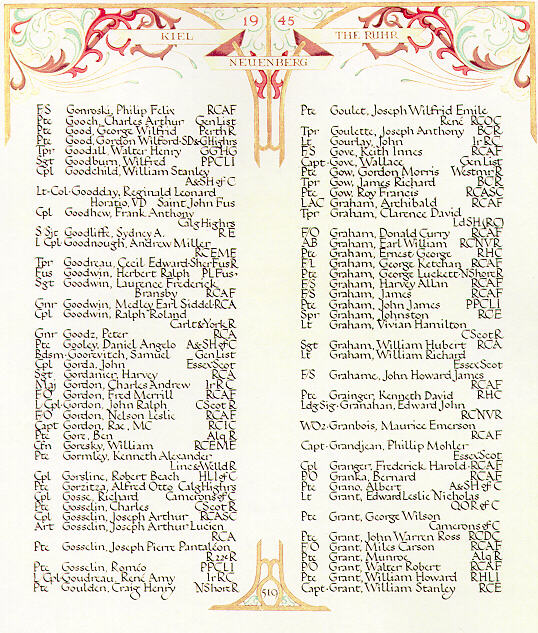 19 45
KIEL THE RUHR
NEUENBERG
FS Gonroski, Philip Felix RCAF
Ptc Gooch, Charles Arthur Gen List
Ptc Good, George Wilfrid Perth R
Ptc Good, Gordon Wilford·SD&GHighrs
Tpr Goodall, Walter Henry GGHG
Sgt Goodburn, Wilfred PPCLI
Cpl Goodchild, William Stanley
A&SH of C
Lt-Col·Goodday, Reginald Leonard
Horatio, VD Saint John Fus
Cpl Goodhew, Frank Anthony
Calg Highrs
S Sjt Goodliffe, Sydney A. RE
L Cpl·Goodnough, Andrew Miller
RCEME
Tpr Goodreau, Cecil Edward·Sher Fus R
Fus Goodwin, Herbert Ralph PL Fus·
Sgt Goodwin, Laurence Frederick
Bransby RCAF
Gnr Goodwin, Medley Earl Siddel·RCA
Cpl Goodwin, Ralph Roland
Carlt & York R
Gnr Goodz, Peter RCA
Ptc Gooley, Daniel Angelo A&SH of C
Bdsm·Goorevitch, Samuel Gen List
Cpl Gorda, John Essex Scot
Sgt Gordanier, Harvey RCA
Maj Gordon, Charles Andrew Ir R C
F O Gordon, Fred Merrill RCAF
L Cpl·Gordon, John Ralph C Scot R
F O Gordon, Nelson Leslie RCAF
Capt Gordon, Rae, MC RCIC
Ptc Gore, Ben Alq R
Cfn Goresky, William RCEME
Ptc Gormley, Kenneth Alexander
Linc & Welld R
Cpl Gorsline, Robert Beach HLI of C
Ptc Gorzitza, Alfred Otto Calg Highrs
Cpl Gosse, Richard Camerons of C
Ptc Gosselin, Charles C Scot R
Cpl Gosselin, Joseph Arthur RCASC
Art Gosselin, Joseph Arthur Lucien
RCA
Ptc Gosselin, Joseph Pierre Pantaléon
R 22e R
Ptc Gosselin, Roméo PPCLI
L Cpl·Goudreau, René Amy Ir R C
Ptc Goulden, Craig Henry N Shor R
Ptc Goulet, Joseph Wilfrid Emile
René RCOC
Tpr Goulette, Joseph Anthony BCR
Lt Gourlay, John Ir R C
F S Gove, Keith Innes RCAF
Capt·Gove, Wallace Gen List
Ptc Gow, Gordon Morris Westmr R
Tpr Gow, James Richard BCR
Ptc Gow, Roy Francis RCASC
LAC Graham, Archibald RCAF
Tpr Graham, Clarence David
Ld SH (RC)
F/O Graham, Donald Curry RCAF
AB Graham, Earl William RCNVR
Ptc Graham, Ernest George RHC
F L Graham, George Ketchan RCAF
Ptc Graham, George Luckett·N Shor R
F/S Graham, Harvey Allan RCAF
F/S Graham, James RCAF
Ptc Graham, John James PPCLI
Spr Graham, Johnston RCE
Lt Graham, Vivian Hamilton
C Scot R
Sgt Graham, William Hubert RCA
Lt Graham, William Richard
Essex Scot
F/S Grahame, John Howard James
RCAF
Ptc Grainger, Kenneth David RHC
Ldg Sig·Granahan, Edward John
RCNVR
WO2·Granbois, Maurice Emerson
RCAF
Capt·Grandjean, Phillip Mohler
Essex Scot
Cpl Granger, Frederick Harold·RCAF
P O Granka, Bernard RCAF
Ptc Grano, Albert A&SH of C
Lt Grant, Edward Leslie Nicholas
QOR of C
Ptc Grant, George Wilson
Camerons of C
Ptc Grant, John Warren Ross RCDC
F/O Grant, Miles Carson RCAF
Ptc Grant, Munroe Alq R
P O Grant, Walter Robert RCAF
Ptc Grant, William Howard RHLI
Capt·Grant, William Stanley RCE
510